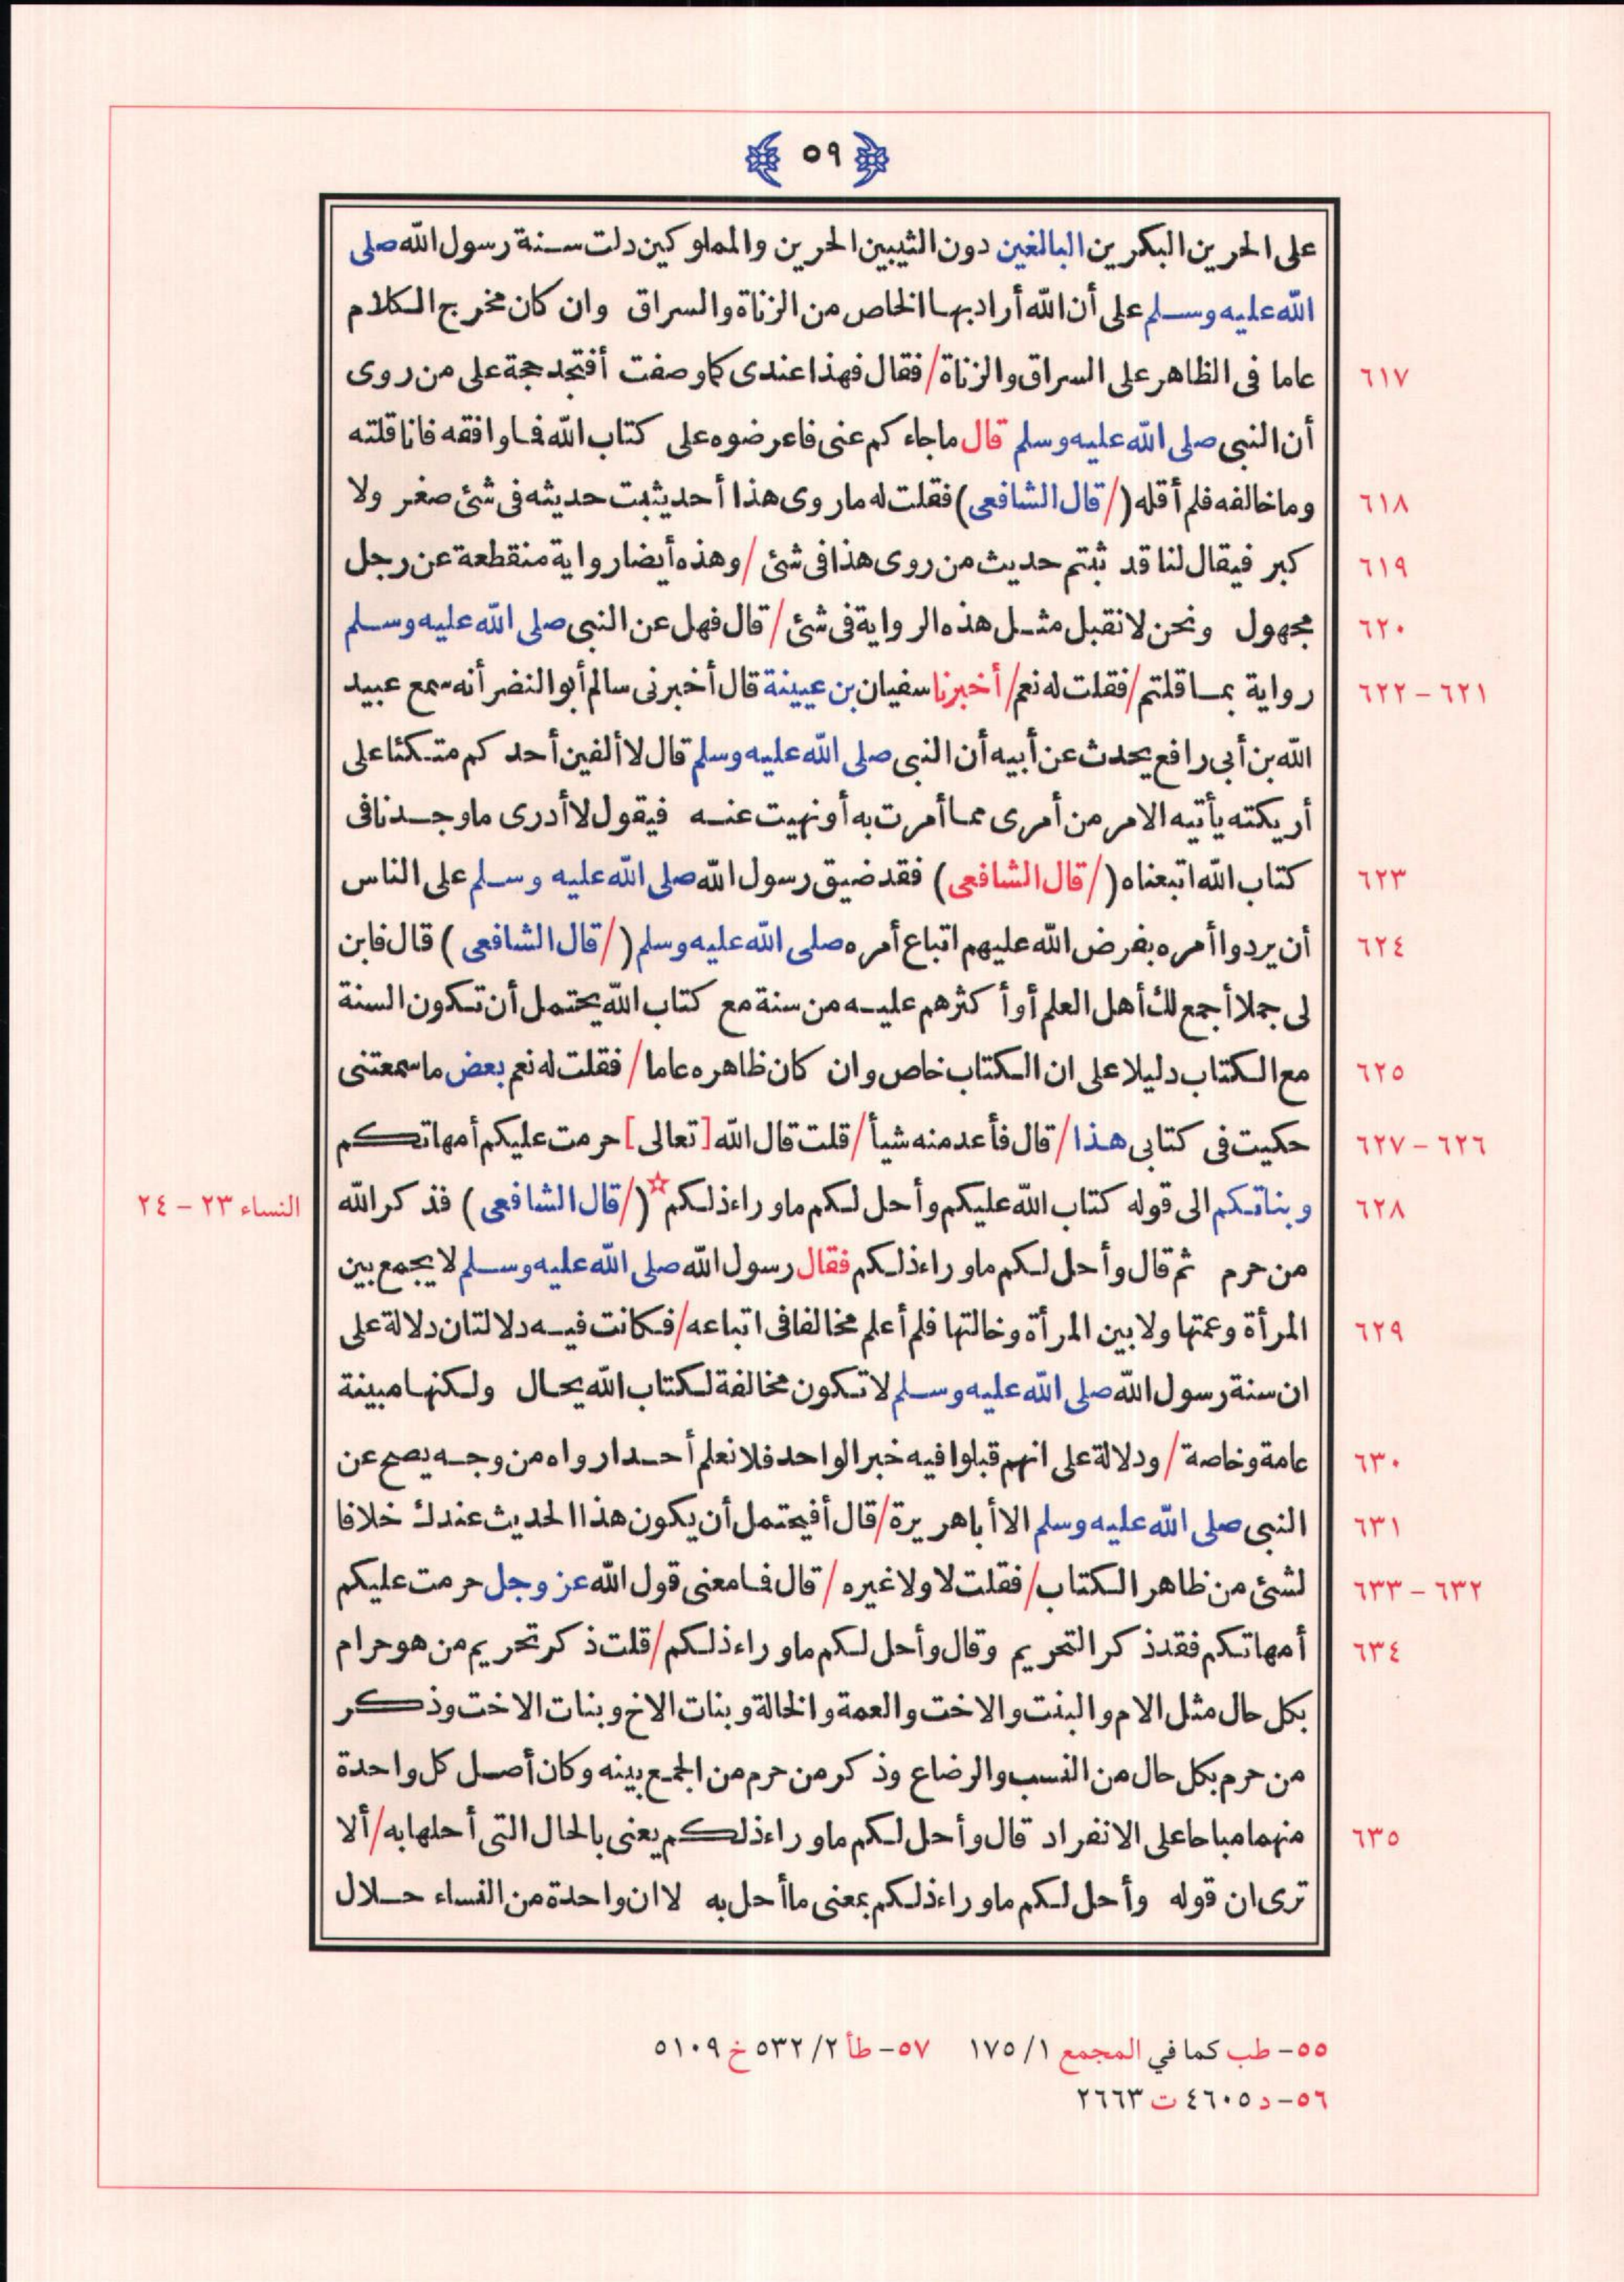 ٥٩
على الحرين البكرين البالغين دون الثيبين الحرين والمملوكين دلت سنة رسول الله صلى
الله عليه وسلم على أن الله أراد بها الخاص من الزناة والسراق وان كان مخرج الكلام
٦١٧ عاما فى الظاهر على السراق والزناة / فقال فهذا عندى كما وصفت أفتجد حجة على من روى
أن النبى صلى الله عليه وسلم قال ماجاءكم عنى فاعرضوه على كتاب الله فما وافقه فانا قلته
٦١٨ وما خالفه فلم أقله (/ قال الشافعى) فقلت له ما روى هذا أحد يثبت حديثه فى شئ صغر ولا
٦١٩ كبر فيقال لنا قد ثبتم حديث من روى هذا فى شئ / وهذه أيضا رواية منقطعة عن رجل
٦٢٠ مجهول ونحن لا نقبل مثل هذه الرواية فى شئ / قال فهل عن النبى صلى الله عليه وسلم
٦٢١ – ٦٢٢ رواية بما قلتم / فقلت له نعم / أخبرنا سفيان بن عيينة قال أخبرنى سالم أبو النضر أنه سمع عبيد
الله بن أبى رافع يحدث عن أبيه أن النبى صلى الله عليه وسلم قال لا ألفين أحدكم متكئا على
أريكته يأتيه الامر من أمرى مما أمرت به أو نهيت عنه فيقول لا أدرى ما وجدنا فى
٦٢٣ كتاب الله اتبعناه (/ قال الشافعى) فقد ضيق رسول الله صلى الله عليه وسلم على الناس
٦٢٤ أن يردوا أمره بفرض الله عليهم اتباع أمره صلى الله عليه وسلم (/ قال الشافعى) قال فابن
لى جملا أجمع لك أهل العلم أو أكثرهم عليه من سنة مع كتاب الله يحتمل أن تكون السنة
٦٢٥ مع الكتاب دليلا على ان الكتاب خاص وان كان ظاهره عاما / فقلت له نعم بعض ما سمعتنى
٦٢٦ – ٦٢٧ حكيت فى كتابى هذا / قال فأعد منه شيأ / قلت قال الله [تعالى] حرمت عليكم أمهاتكم
٦٢٨ وبناتكم الى قوله كتاب الله عليكم وأحل لكم ما وراء ذلكم☆ (/ قال الشافعى) فذكر الله النساء ٢٣ – ٢٤
من حرم ثم قال وأحل لكم ما وراء ذلكم فقال رسول الله صلى الله عليه وسلم لا يجمع بين
٦٢٩ المرأة وعمتها ولا بين المرأة وخالتها فلم أعلم مخالفا فى اتباعه / فكانت فيه دلالتان دلالة على
ان سنة رسول الله صلى الله عليه وسلم لا تكون مخالفة لكتاب الله بحال ولكنها مبينة
٦٣٠ عامة وخاصة / ودلالة على انهم قبلوا فيه خبر الواحد فلا نعلم أحدا رواه من وجه يصح عن
٦٣١ النبى صلى الله عليه وسلم الا أبا هريرة / قال أفيحتمل أن يكون هذا الحديث عندك خلافا
٦٣٢ – ٦٣٣ لشئ من ظاهر الكتاب / فقلت لا ولا غيره / قال فما معنى قول الله عز وجل حرمت عليكم
٦٣٤ أمهاتكم فقد ذكر التحريم وقال وأحل لكم ما وراء ذلكم / قلت ذكر تحريم من هو حرام
بكل حال مثل الام والبنت والاخت والعمة والخالة وبنات الاخ وبنات الاخت وذكر
من حرم بكل حال من النسب والرضاع وذكر من حرم من الجمع بينه وكان أصل كل واحدة
٦٣٥ منهما مباحا على الانفراد قال وأحل لكم ما وراء ذلكم يعنى بالحال التى أحلها به / ألا
ترى ان قوله وأحل لكم ما وراء ذلكم بمعنى ما أحل به لا ان واحدة من النساء حلال
٥٥- طب كما في المجمع ١/ ١٧٥ ٥٧- طأ ٢/ ٥٣٢ خ ٥١٠٩
٥٦- د ٤٦٠٥ ت ٢٦٦٣